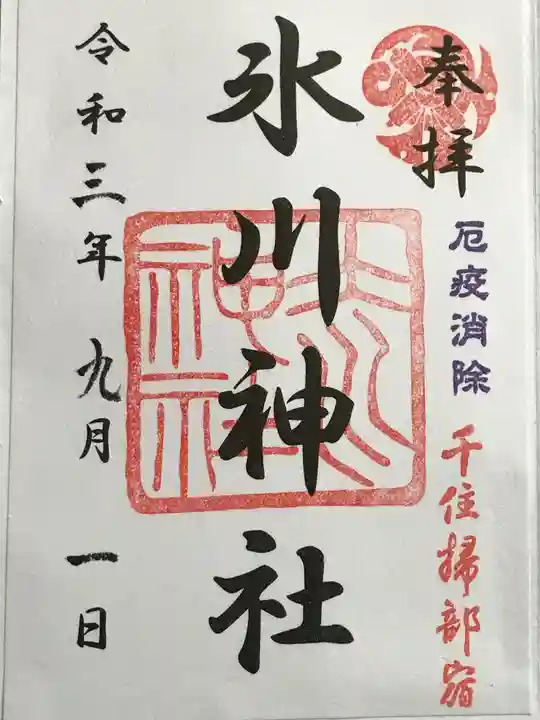 奉拝
厄疫消除
千住掃部宿
氷川神社
令和三年九月一日